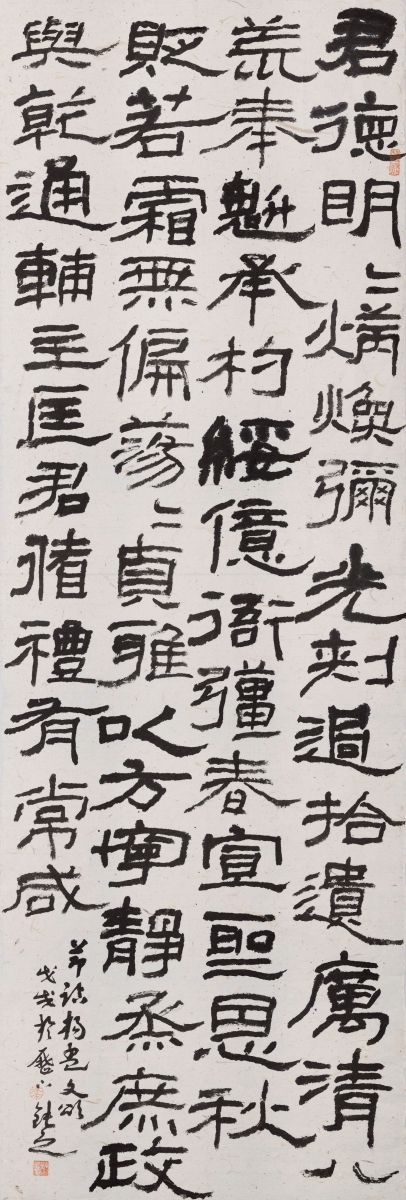 君德明〻炳煥彌光刾過拾遺厲清八
荒奉魁承杓綏億衙彊春宣聖恩秋
貶若霜無偏蕩〻貞雅以方寧靜烝庶政
與乾通輔主匡君循禮有常咸
節臨楊孟文頌
戊戌於歷下